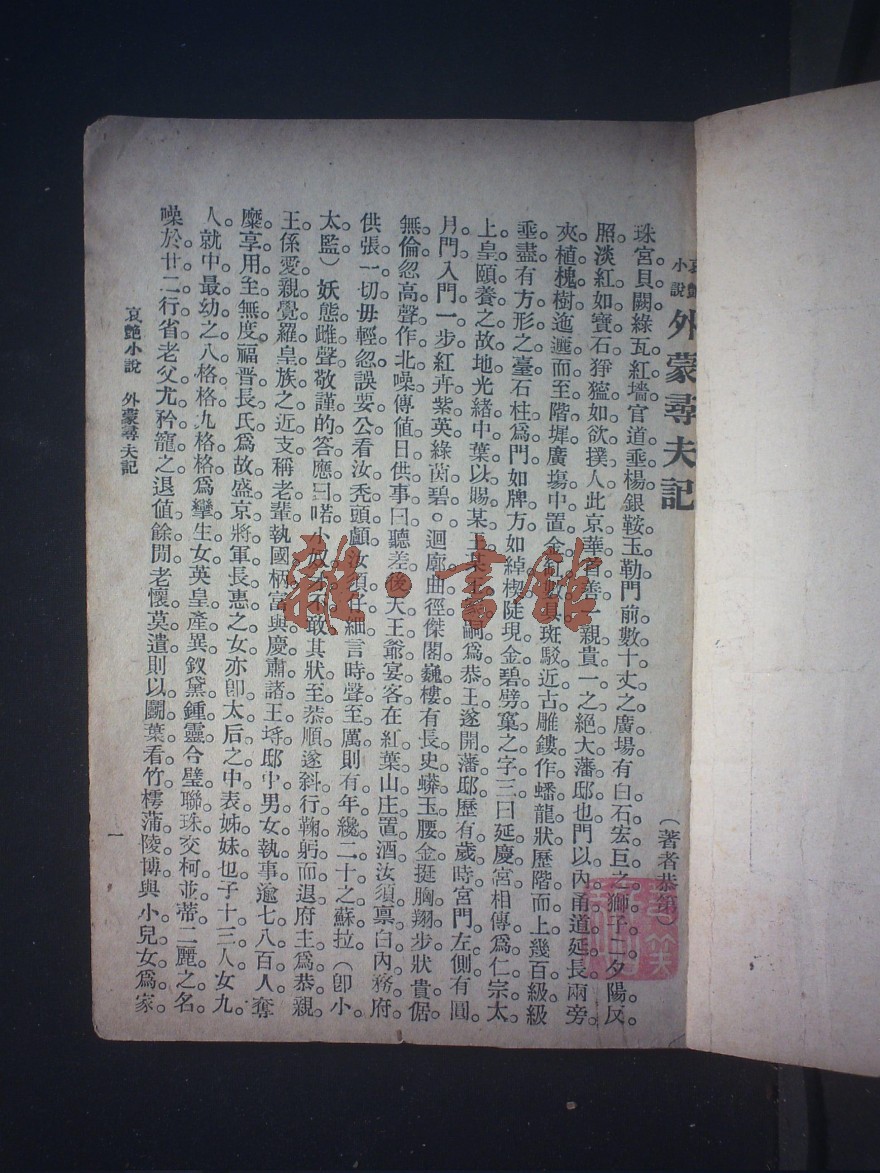 哀艷小說 外蒙尋夫記
（著者恭第）
珠宮貝闕綠瓦紅墻官道垂楊銀鞍玉勒門前數十丈之廣場有白石宏巨之獅子二夕陽反
照淡紅如寶石猙獰如欲撲人此京華首善親貴一之絕大藩邸也門以內甬道延長兩旁
夾植槐樹迤邐而至階墀廣塲中置金缸數具斑駁近古雕鏤作蟠龍狀歷階而上幾百級級
垂盡有方形之臺石柱爲門如牌方如綽楔陡現金碧劈窠之字三曰延慶宮相傳爲仁宗太
上皇頤養之故地光緒中葉以賜某王某王嗣爲恭王遂開藩邸歷有歲時宮門左側有圓
月門入門一步紅卉紫英綠茵碧。迴廓曲徑傑閣巍樓有長史蟒玉腰金挺胸翔步狀貴倨
無倫忽高聲作北噪傳値日供事曰聽差後天王爺宴客在紅葉山庄置酒汝須禀白內務府
供張一切毋輕忽誤要公看汝禿頭顱汝須仔細言時聲至厲則有年纔二十之蘇拉（卽小
太監）妖態雌聲敬謹的答應曰喏小奴才不敢其狀至恭順遂斜行鞠躬而退府主爲恭親
王係愛親覺羅皇族之近支稱老輩執國柄富與慶肅諸王埒邸中男女執事逾七八百人奪
糜享用至無度福晋長氏爲故盛京將軍長惠之女亦卽太后之中表姊妹也子十三人女九
人就中最幼之八格格九格格爲孿生女英皇產異釵黛鍾靈合璧聯珠交柯並蒂二麗之名
噪於廿二行省老父尤矜寵之退値餘閒老懷莫遣則以鬭葉看竹樗蒲陵博與小兒女爲家
哀艷小說 外蒙尋夫記
一
雜·書館